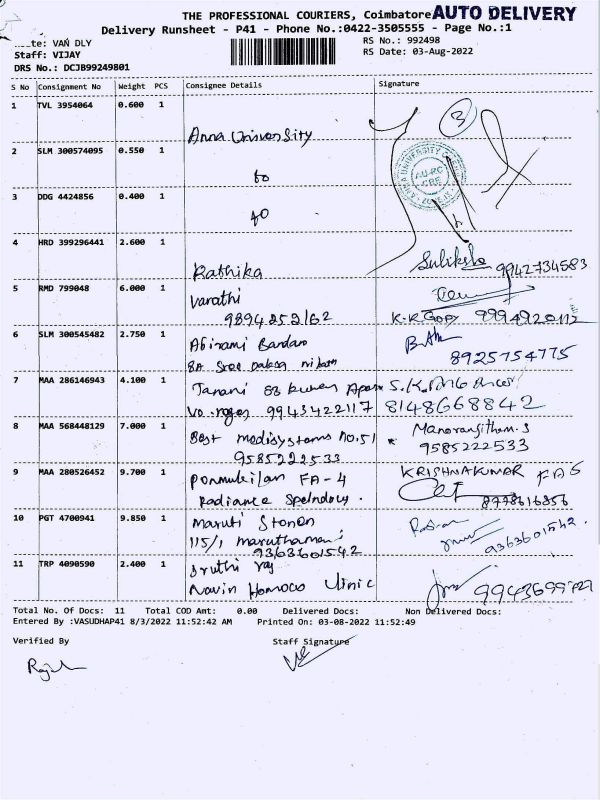 THE PROFESSIONAL COURIERS, Coimbatore AUTO DELIVERY
Delivery Runsheet - P41 - Phone No.:0422-3505555 - Page No.:1
te: VAN DLY
RS No.: 992498
Staff: VIJAY
RS Date: 03-Aug-2022
DRS No.: DCJB99249801
S No Consignment No Weight PCS Consignee Details Signature
1 TVL 3954064 0.600 1
Anna University
3
2 SLM 300574095 0.550 1
to
ANNA UNIVERSITY
AU-RC
CBE
3 DDG 4424856 0.400 1
4 HRD 399296441 2.600 1
Rathika
9942734583
5 RMD 799048 6.000 1
Varathi
9894252162 K.R.Gopy 9994920112
6 SLM 300545482 2.750 1
Abirami
8A Sree
8925754775
7 MAA 286146943 4.100 1
9943422117 8148668842
8 MAA 568448129 7.000 1
Best medisystems no.51
Manoranjitham.S
9585222533
9585222533
9 MAA 280526452 9.700 1
FA-4
KRISHNAKUMAR
Radiance
8778616856
10 PGT 4700941 9.850 1
Maruti Stones
115/1
9363601542
9363601542
11 TRP 4090590 2.400 1
Sruthi raj
Navin Homoeo Clinic
Total No. Of Docs: 11 Total COD Amt: 0.00 Delivered Docs: Non Delivered Docs:
Entered By :VASUDHAP41 8/3/2022 11:52:42 AM Printed On: 03-08-2022 11:52:49
Verified By Staff Signature